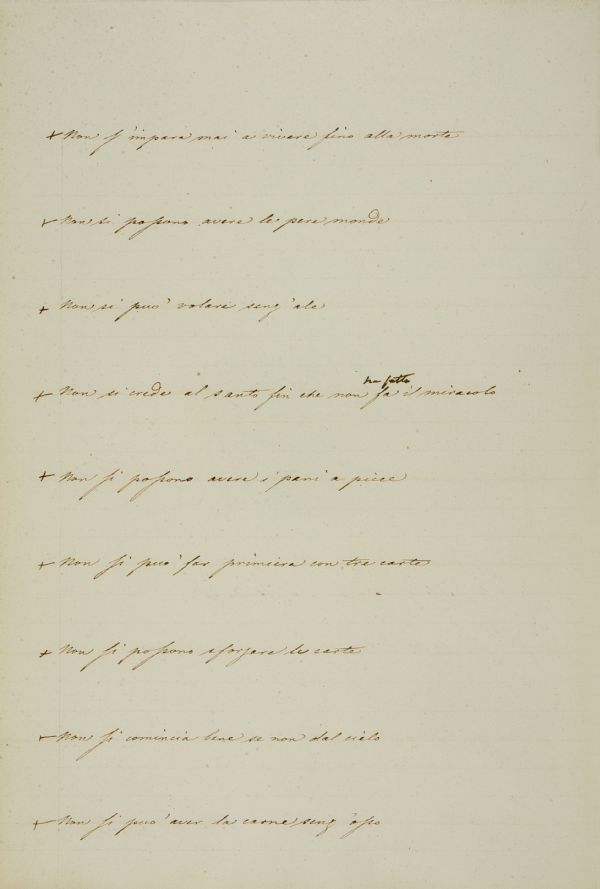 + Non s'impara mai a vivere fino alla morte
+ Non si possono avere le pere monde
+ Non si puo' volare senz'ale
ha fatto
+ Non si crede al santo fin che non fa il miracolo
+ Non si possono avere i pani a picce
+ Non si puo' far primiera con tre carte
+ Non si possono sforzare le carte
+ Non si comincia bene se non dal cielo
+ Non si puo' aver la carne senz'osso